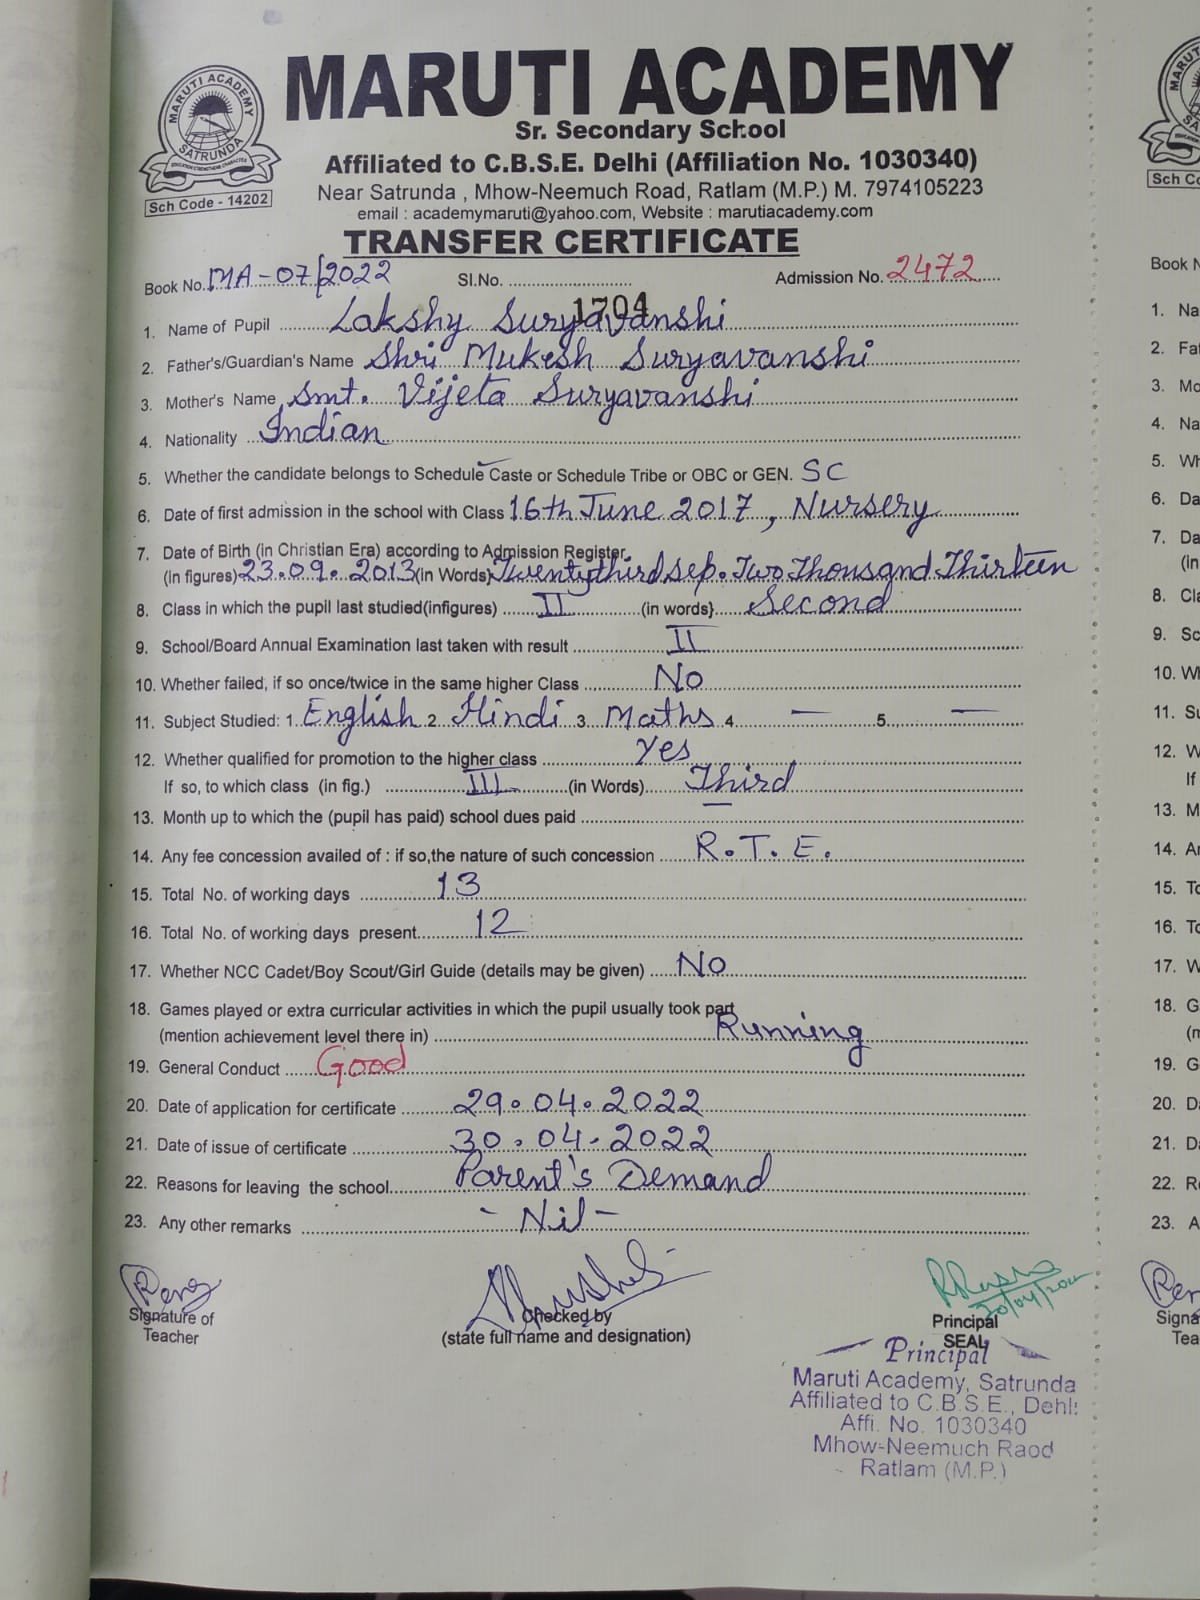 MARUTI ACADEMY
Sr. Secondary School
Affiliated to C.B.S.E. Delhi (Affiliation No. 1030340)
Near Satrunda , Mhow-Neemuch Road, Ratlam (M.P.) M. 7974105223
email : academymaruti@yahoo.com, Website : marutiacademy.com
MARUTI ACADEMY
SATRUNDA
Sch Code - 14202
TRANSFER CERTIFICATE
Book No. MA-07/2022 Sl.No. 1704 Admission No. 2472
1. Name of Pupil Lakshy Suryavanshi
2. Father's/Guardian's Name Shri Mukesh Suryavanshi
3. Mother's Name Smt. Vijeta Suryavanshi
4. Nationality Indian
5. Whether the candidate belongs to Schedule Caste or Schedule Tribe or OBC or GEN. SC
6. Date of first admission in the school with Class 16th June 2017, Nursery
7. Date of Birth (in Christian Era) according to Admission Register
(in figures) 23.09.2013 (in Words) Twentythird Sep. Two Thousand Thirteen
8. Class in which the pupil last studied(infigures) II (in words} Second
9. School/Board Annual Examination last taken with result II
10. Whether failed, if so once/twice in the same higher Class No
11. Subject Studied: 1. English 2. Hindi 3. Maths 4. — 5. —
12. Whether qualified for promotion to the higher class Yes
If so, to which class (in fig.) III (in Words) Third
13. Month up to which the (pupil has paid) school dues paid —
14. Any fee concession availed of : if so,the nature of such concession R.T.E.
15. Total No. of working days 13
16. Total No. of working days present 12
17. Whether NCC Cadet/Boy Scout/Girl Guide (details may be given) No
18. Games played or extra curricular activities in which the pupil usually took part
(mention achievement level there in) Running
19. General Conduct Good
20. Date of application for certificate 29.04.2022
21. Date of issue of certificate 30.04.2022
22. Reasons for leaving the school Parent's Demand
23. Any other remarks - Nil -
Signature of
Teacher
Checked by
(state full name and designation)
30/04/2022
Principal
SEAL
Principal
Maruti Academy, Satrunda
Affiliated to C.B.S.E., Dehli
Affi. No. 1030340
Mhow-Neemuch Raod
Ratlam (M.P.)